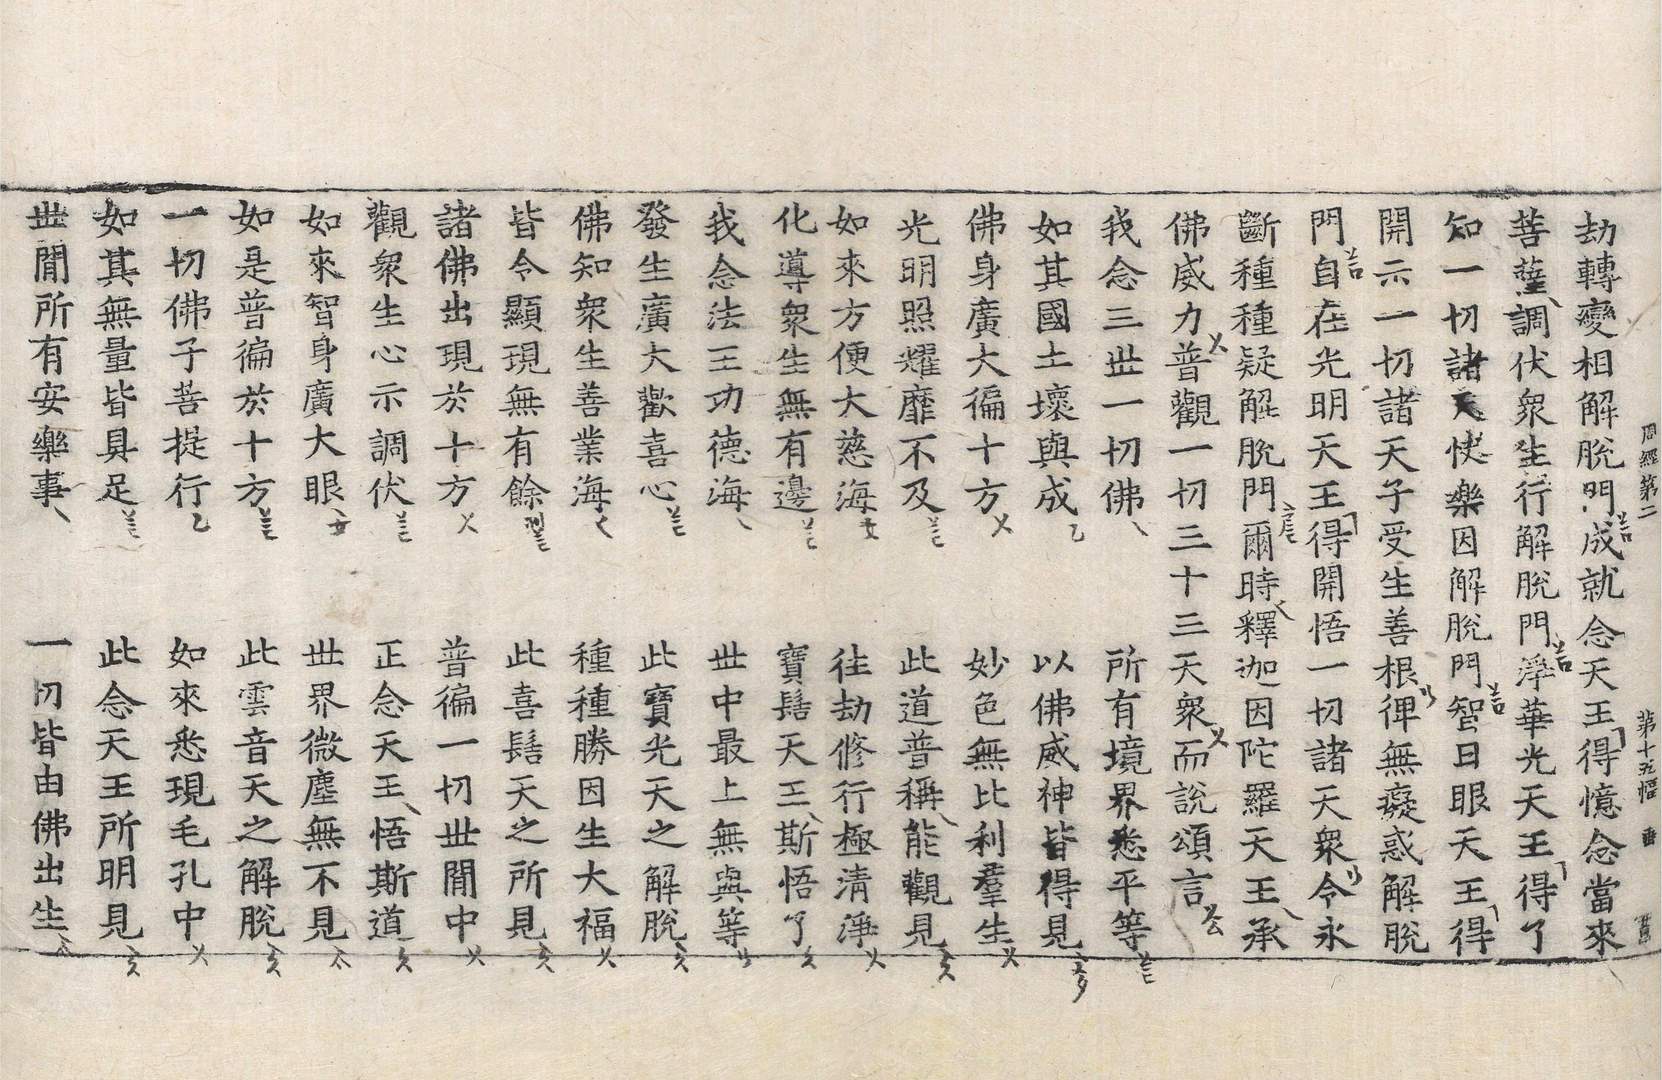 周經第二 第十五幅
劫轉變相解脫門成就念天王得憶念當來
菩薩調伏衆生行解脫門淨華光天王得了
知一切諸天快樂因解脫門智日眼天王得
開示一切諸天子受生善根俾無癡惑解脫
門自在光明天王得開悟一切諸天衆令永
斷種種疑解脫門爾時釋迦因陀羅天王承
佛威力普觀一切三十三天衆而說頌言
我念三世一切佛 所有境界悉平等
如其國土壞與成 以佛威神皆得見
佛身廣大徧十方 妙色無比利羣生
光明照耀靡不及 此道普稱能觀見
如來方便大慈海 往劫修行極清淨
化導衆生無有邊 寶髻天王斯悟了
我念法王功德海 世中最上無與等
發生廣大歡喜心 此寶光天之解脫
佛知衆生善業海 種種勝因生大福
皆令顯現無有餘 此喜髻天之所見
諸佛出現於十方 普徧一切世閒中
觀衆生心示調伏 正念天王悟斯道
如來智身廣大眼 世界微塵無不見
如是普徧於十方 此雲音天之解脫
一切佛子菩提行 如來悉現毛孔中
如其無量皆具足 此念天王所明見
世閒所有安樂事 一切皆由佛出生